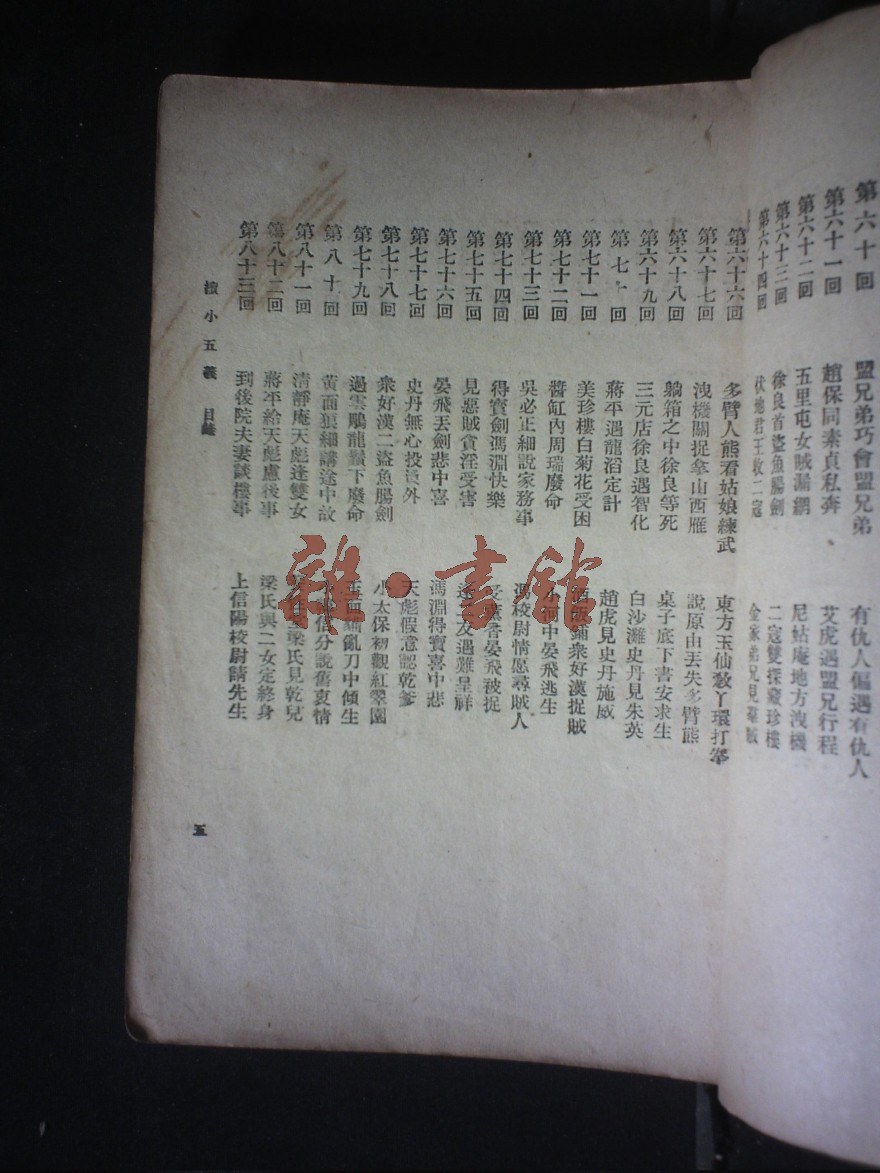 第六十回 盟兄弟巧會盟兄弟 有仇人偏遇有仇人
第六十一回 趙保同素貞私奔 艾虎遇盟兄行程
第六十二回 五里屯女賊漏網 尼姑庵地方洩機
第六十三回 徐良首盜魚腸劍 二寇雙探藏珍樓
第六十四回 伏地君王收二寇 金家弟兄見羣賊
第六十六回 多臂人熊看姑娘練武 東方玉仙教丫環打拳
第六十七回 洩機關捉拿山西雁 說原由丟失多臂熊
第六十八回 躺箱之中徐良等死 桌子底下書安求生
第六十九回 三元店徐良遇智化 白沙灘史丹見朱英
第七十回 蔣平遇龍滔定計 趙虎見史丹施威
第七十一回 美珍樓白菊花受困 酒飯鋪衆好漢捉賊
第七十二回 醬缸內周瑞廢命 小河中晏飛逃生
第七十三回 吳必正細說家務事 馮校尉情愿尋賊人
第七十四回 得寶劍馮淵快樂 受薰香晏飛被捉
第七十五回 見惡賊貪淫受害 逢二友遇難呈祥
第七十六回 晏飛丟劍悲中喜 馮淵得寶喜中悲
第七十七回 史丹無心投員外 天彪假意認乾爹
第七十八回 衆好漢二盜魚腸劍 小太保初觀紅翠園
第七十九回 過雲鵰龍鬚下廢命 玉面貓亂刀中傾生
第八十回 黃面狼細講途中故 信分說舊衷情
第八十一回 清靜庵天彪逢雙女 梁氏見乾兒
第八十二回 蔣平給天彪慮後事 梁氏與二女定終身
第八十三回 到後院夫妻談樓事 上信陽校尉請先生
按小五義 目錄
五
雜·書館